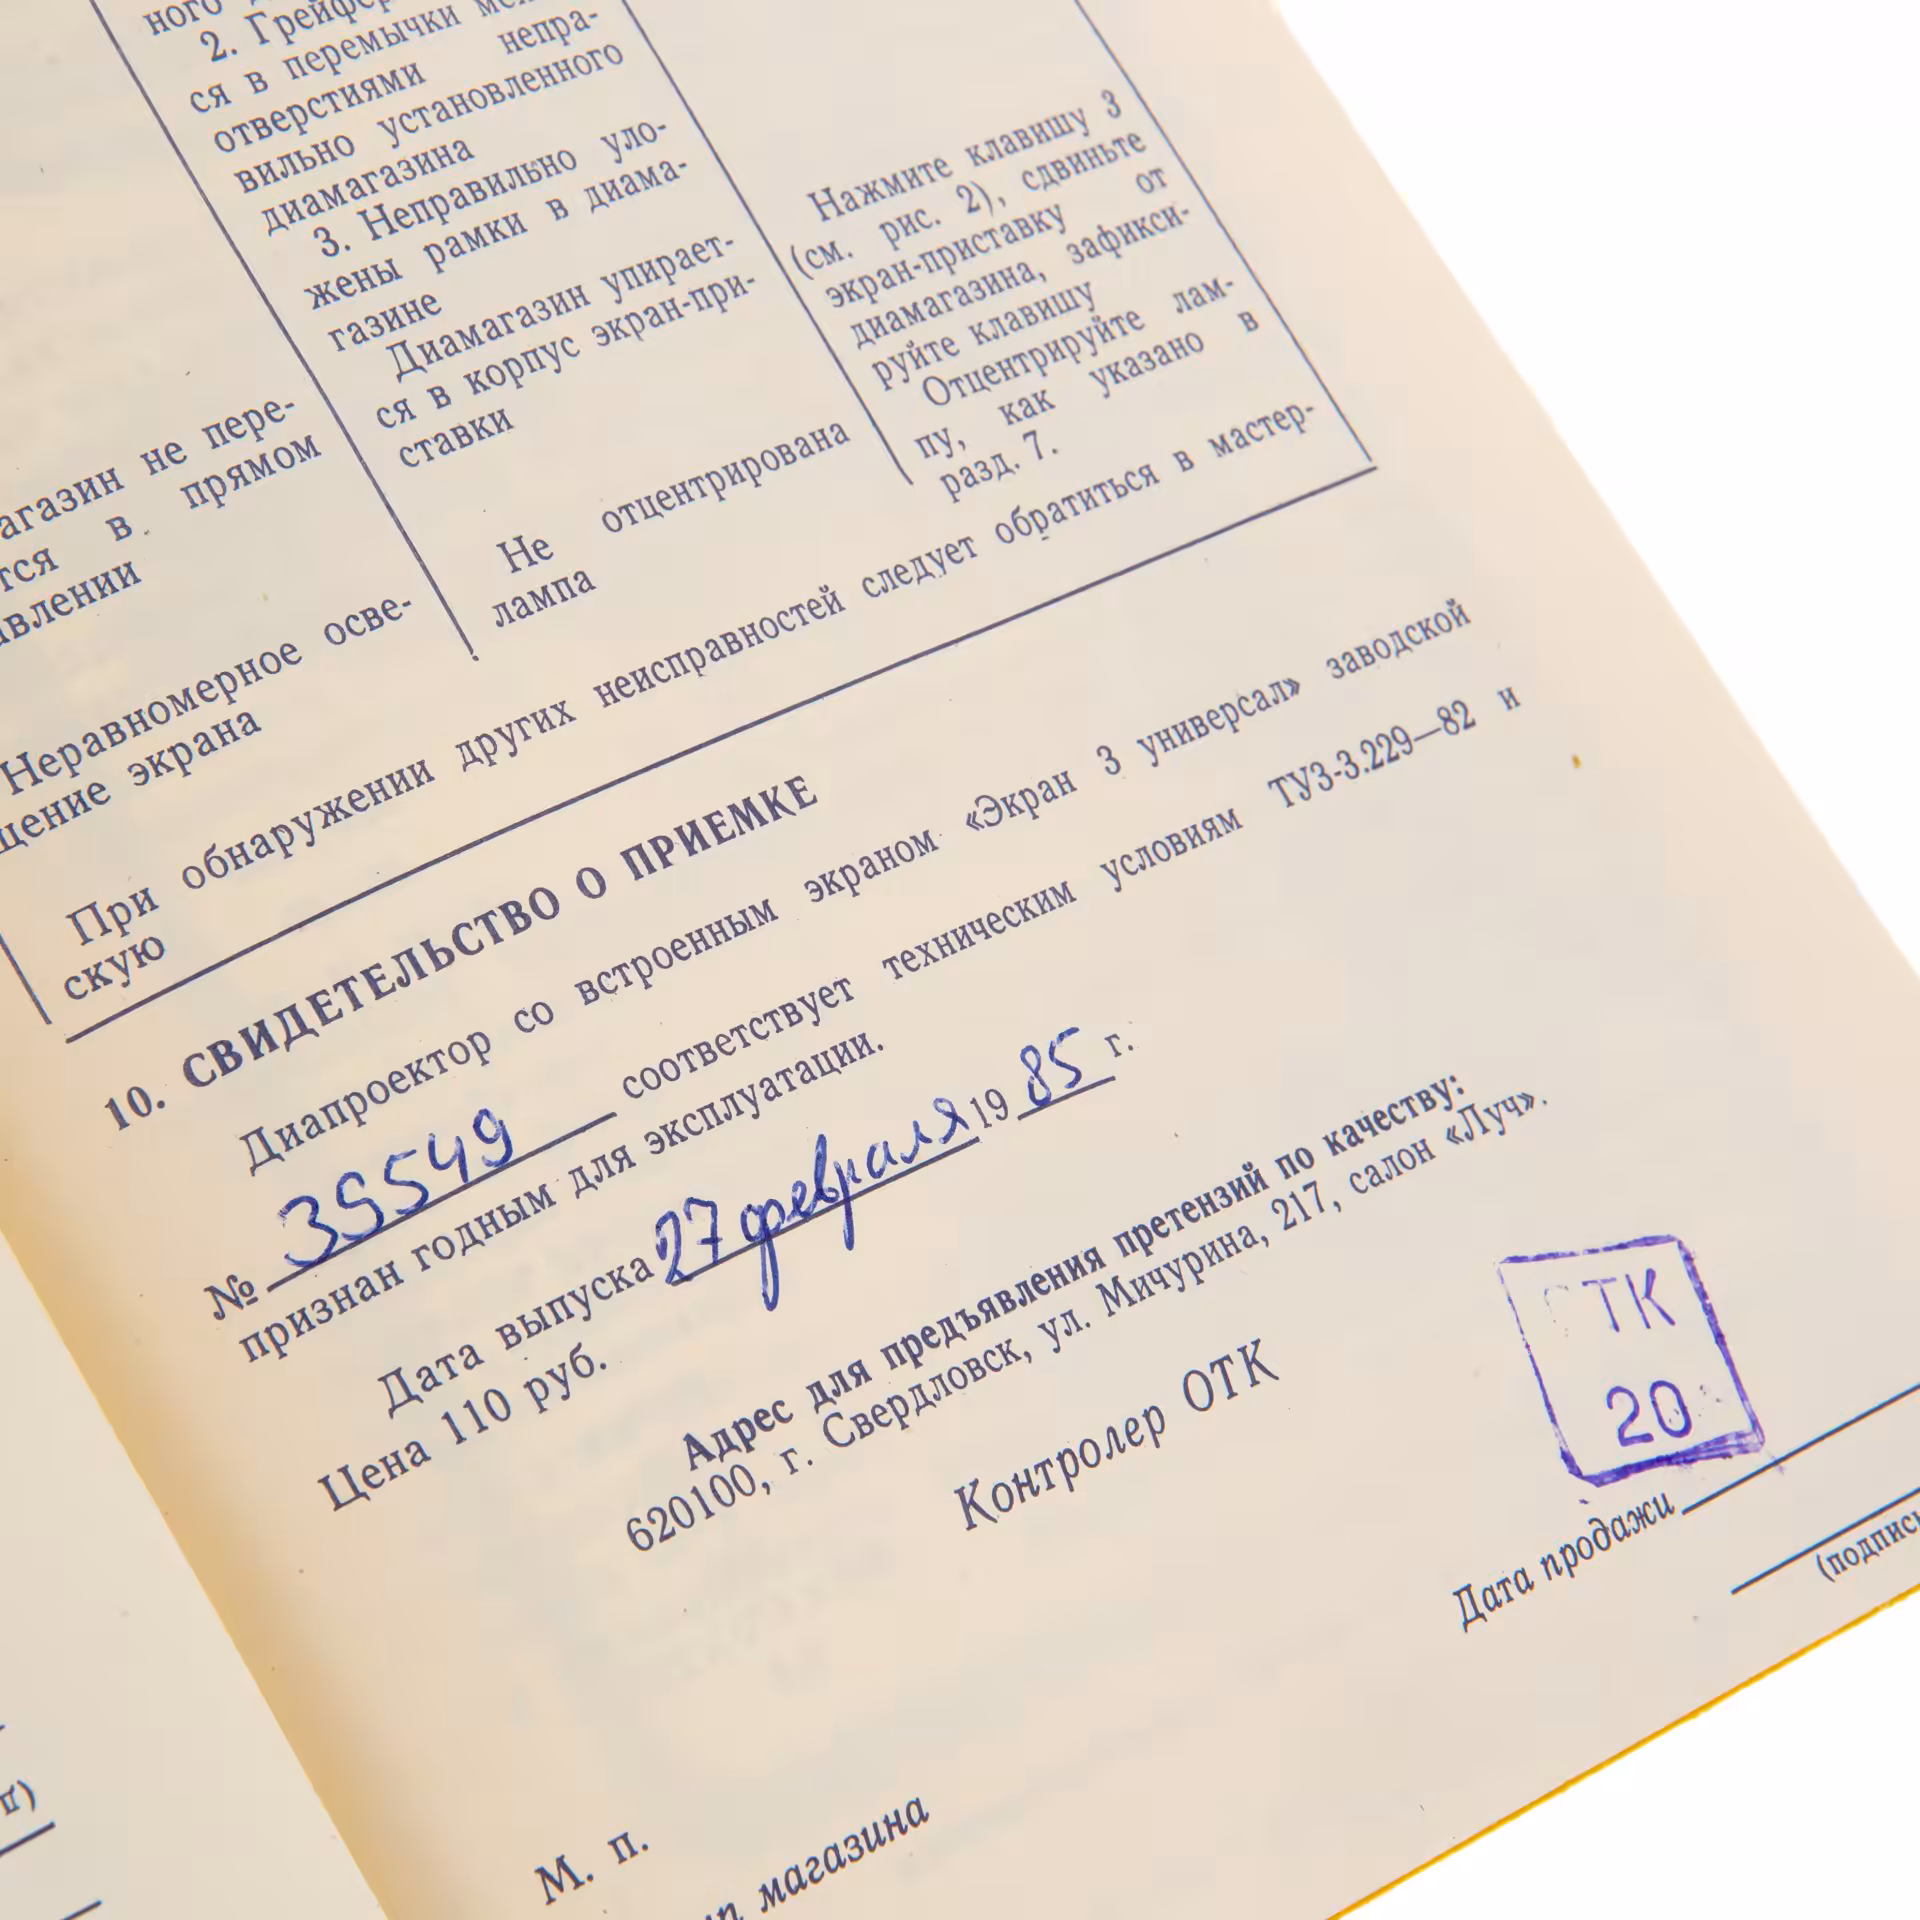 2.
ся в перемычки
отверстиями непра-
вильно установленного
диамагазина
3. Неправильно уло-
жены рамки в диама-
газине
Диамагазин упирает-
ся в корпус экран-при-
ставки
Не отцентрирована
лампа
Нажмите клавишу 3
(см. рис. 2), сдвиньте
экран-приставку от
диамагазина, зафикси-
руйте клавишу
Отцентрируйте лам-
пу, как указано в
разд. 7.
не пере-
в прямом
Неравномерное осве-
экрана
При обнаружении других неисправностей следует обратиться в мастер-
скую
10. СВИДЕТЕЛЬСТВО О ПРИЕМКЕ
Диапроектор со встроенным экраном «Экран 3 универсал» заводской
№ 39549 соответствует техническим условиям ТУ3-3.229—82 и
признан годным для эксплуатации.
Дата выпуска 27 февраля 1985 г.
Цена 110 руб.
Адрес для предъявления претензий по качеству:
620100, г. Свердловск, ул. Мичурина, 217, салон «Луч».
Контролер ОТК
ОТК
20
Дата продажи
М. п.
магазина